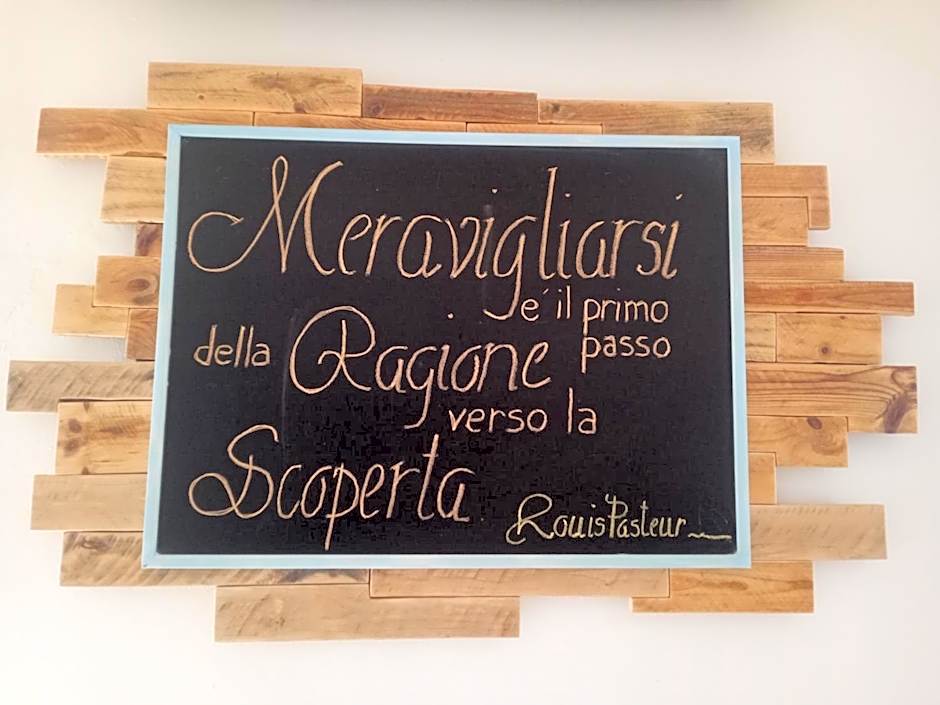 Meravigliarsi
e' il primo
passo
della Ragione
verso la
Scoperta
Louis Pasteur